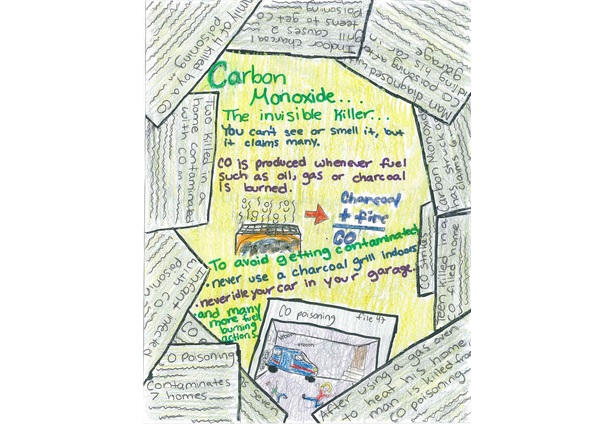 Carbon
Monoxide...
The invisible Killer...
You can't see or smell it, but
it claims many.
CO is produced whenever fuel
such as oil, gas or charcoal
is burned.
Charcoal
+ fire
CO
To avoid getting contaminated
• never use a charcoal grill indoors
• never idle your car in your garage.
• and many
more fuel
burning
actions
CO poisoning file 47
family of 4 killed by a CO
poisoning
Indoor charcoal
grill causes 2
teens to get CO
poisoning
Man diagnosed with
CO poisoning after
idling his car in
garage
Two killed in a
home contaminated
with CO
Carbon Monoxide
has struck
claims 6
CO strikes
teen killed in a
CO filled home
CO Poisoning
Contaminates
7 homes
seven
After using a gas oven
to heat his home
man is killed from
CO poisoning